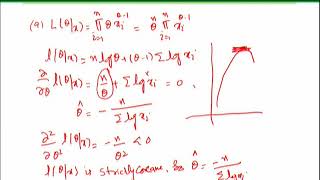 (a) L(θ|x) = ∏ᵢ₌₁ⁿ θ xᵢ^(θ-1) = θⁿ ∏ᵢ₌₁ⁿ xᵢ^(θ-1)
l(θ|x) = n log θ + (θ-1) Σ log xᵢ
∂/∂θ l(θ|x) = n/θ + Σ log xᵢ = 0,
θ̂ = - n/(Σ log xᵢ)
∂²/∂θ² l(θ|x) = - n/θ² < 0
l(θ|x) is strictly concave, So θ̂ = -n/(Σ log xᵢ)